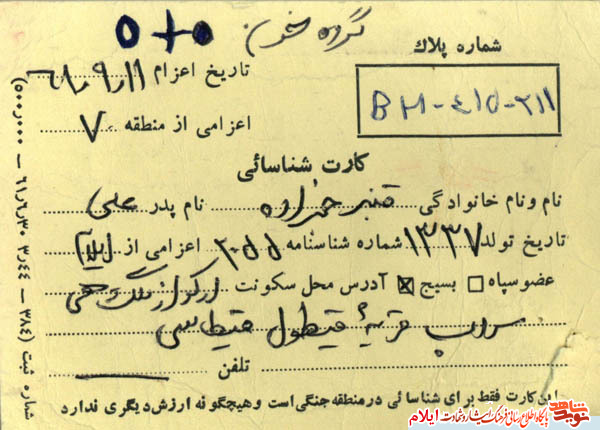 گروه خون O+
شماره پلاك
BM-415-211
تاریخ اعزام ۶۱٫۹٫۱۱
اعزامی از منطقه ۷
كارت شناسائی
نام و نام خانوادگی قنبر حمزاده نام پدر علی
تاریخ تولد ۱۳۳۷ شماره شناسنامه ۲۰۵۵ اعزامی از ایلام
عضو سپاه بسیج آدرس محل سکونت ارکواز ملکشاهی
سراب قریهٔ قیطول
تلفن
این کارت فقط برای شناسائی در منطقه جنگی است و هیچگونه ارزش دیگری ندارد
شماره ثبت (۳۸۴ – ۴۴ر۳ ۳۰ر۶ر۶۱ – ۵۰۰٫۰۰۰)
نوید شاهد
پایگاه اطلاع رسانی فرهنگ ایثار و شهادت ایلام